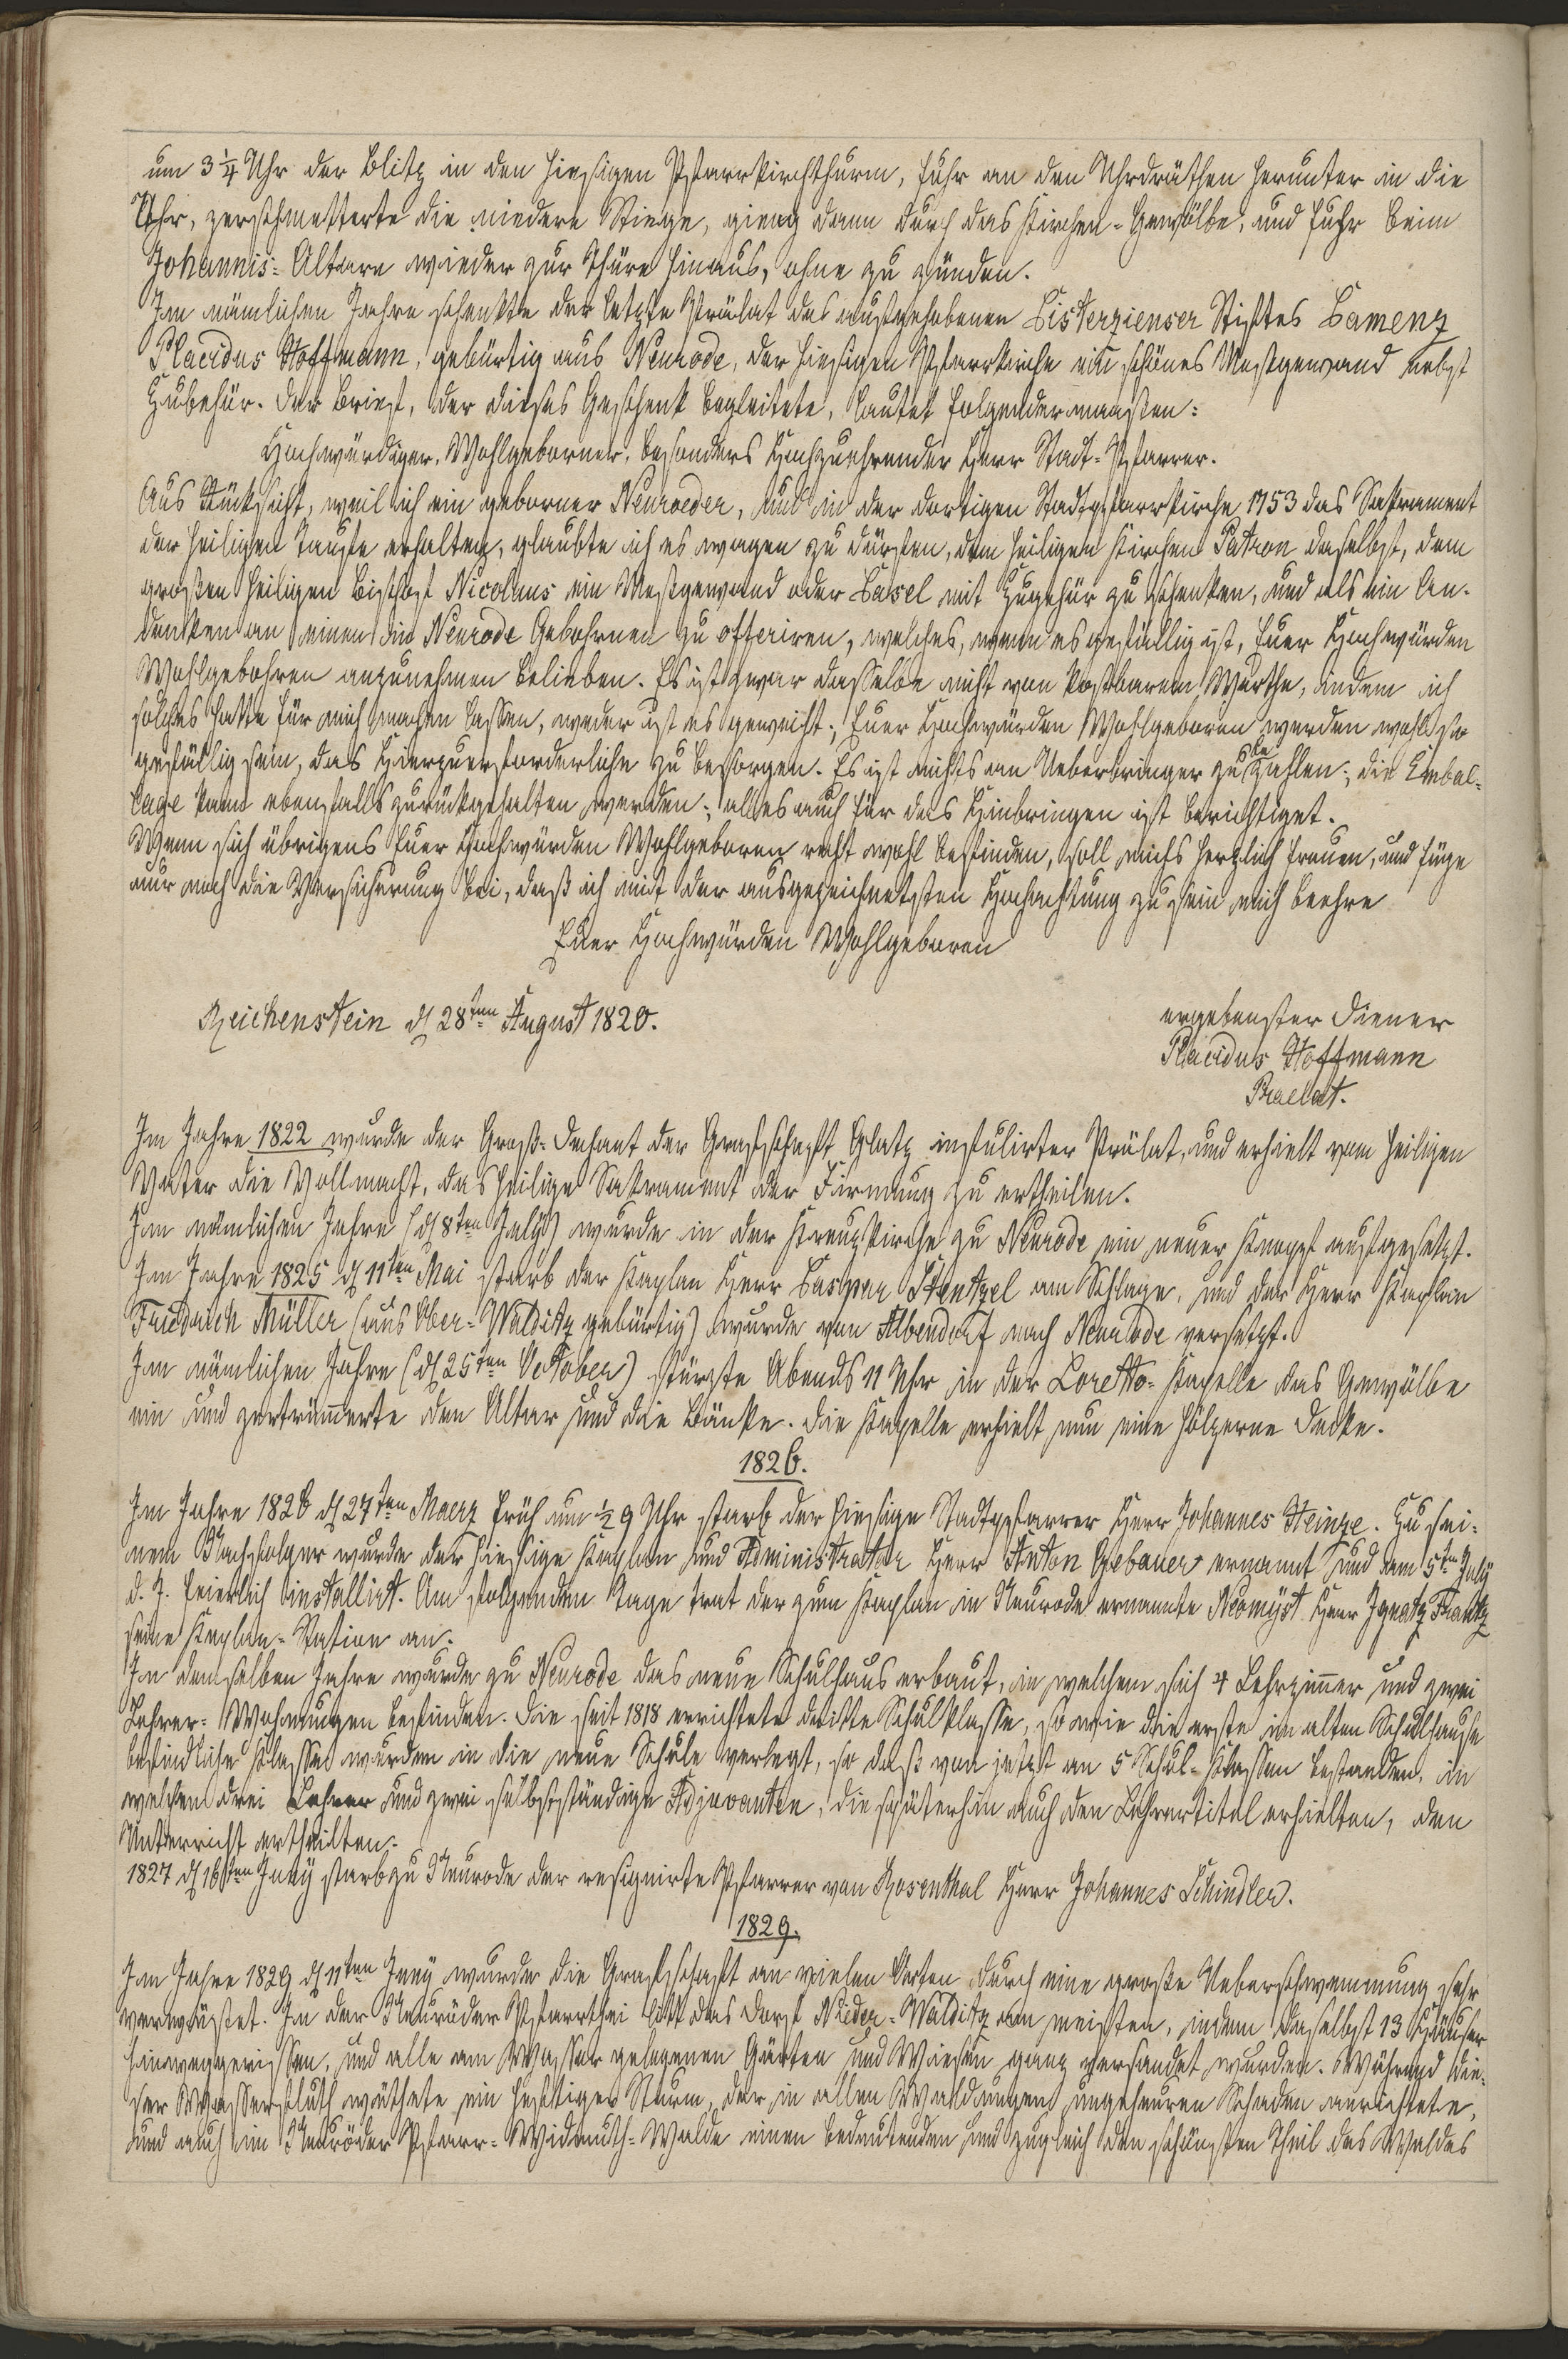 um 3 1/4 Uhr der Blitz in den hiesigen Pfarrkirchthurm, fuhr an den Uhrdräthen herunter in die
Uhr, zerschmetterte die niedere Stiege, gieng dann durch das Kirchen-Gewölbe, und fuhr beim
Johannis-Altare wieder zur Thüre hinaus, ohne zu zünden.
Im nämlichen Jahre schenkte der letzte Prälat des aufgehobenen Cisterzienser Stiftes Camenz
Placidus Hoffmann, gebürtig aus Neurode, der hiesigen Pfarrkirche ein schönes Meßgewand nebst
Zubehör. Der Brief, der dieses Geschenk begleitete, lautet folgendermaaßen:
Hochwürdiger, Wohlgeborner, besonders Hochzuehrender Herr Stadt-Pfarrer.
Aus Rücksicht, weil ich ein geborner Neuroeder, und in der dortigen Stadtpfarrkirche 1753 das Sakrament
der heiligen Taufe erhalten, glaubte ich es wagen zu dürfen, dem heiligen Kirchen Patron daselbst, dem
großen heiligen Bischof Nicolaus ein Meßgewand oder Casel mit Zugehör zu schenken, und als ein An-
denken an einen in Neurode Gebohrnen zu offeriren, welches, wenn es gefällig ist, Euer Hochwürden
Wohlgebohren anzunehmen belieben. Es ist zwar dasselbe nicht von kostbarem Werthe, indem ich
solches hatte für mich machen lassen, weder ist es geweiht; Euer Hochwürden Wohlgeboren werden wohl so
gefällig sein, das Hierzuerforderliche zu besorgen. Es ist nichts an Ueberbringer zu bezahlen; die Embal-
lage kann ebenfalls zurückgehalten werden; alles auch für das Hinbringen ist berichtiget.
Wenn sich übrigens Euer Hochwürden Wohlgeboren recht wohl befinden, soll michs herzlich freuen, und füge
nur noch die Versicherung bei, daß ich mit der ausgezeichnetsten Hochachtung zu sein mich beehre
Euer Hochwürden Wohlgeboren
Reichenstein d 28ten August 1820.
ergebenster Diener
Placidus Hoffmann
Praelat.
Im Jahre 1822 wurde der Groß-Dechant der Grafschaft Glatz infulirter Prälat, und erhielt vom heiligen
Vater die Vollmacht, das heilige Sakrament der Firmung zu ertheilen.
Im nämlichen Jahre (d 8ten July) wurde in der Kreuzkirche zu Neurode ein neuer Knopf aufgesetzt.
Im Jahre 1825 d 11ten Mai starb der Kaplan Herr Caspar Hentzel am Schlage, und der Herr Kaplan
Friedrich Müller (aus Ober-Walditz gebürtig) wurde von Albendorf nach Neurode versetzt.
Im nämlichen Jahre (d 25ten October) stürzte Abends 11 Uhr in der Loretto-Kapelle das Gewölbe
ein und zertrümerte den Altar und die Bänke. Die Kapelle erhielt nun eine hölzerne Decke.
1826.
Im Jahre 1826 d 27ten Maerz früh um 1/2 9 Uhr starb der hiesige Stadtpfarrer Herr Johannes Heinze. Zu sei-
nem Nachfolger wurde der hiesige Kaplan und Administrator Herr Anton Gebauer ernannt und am 5ten July
d. J. feierlich installirt. Am folgenden Tage trat der zum Kaplan in Neurode ernannte Neomyst Herr Ignatz Frantz
seine Kaplan-Station an.
In demselben Jahre wurde zu Neurode das neue Schulhaus erbaut, in welchem sich 4 Lehrzimer und zwei
Lehrer-Wohnungen befinden. Die seit 1818 errichtete dritte Schulklasse, so wie die erste im alten Schulhause
befindliche Klasse wurden in die neue Schule verlegt, so daß von jetzt an 5 Schul-Klassen bestanden, in
welchen drei Lehrer und zwei selbstständige Adjuvanten, die späterhin auch den Lehrertitel erhielten, den
Unterricht ertheilten.
1827 d 16ten Juny starb zu Neurode der resignirte Pfarrer von Rosenthal Herr Johannes Schindler.
1829.
Im Jahre 1829 d 11ten Juny wurde die Grafschaft an vielen Orten durch eine große Ueberschwemmung sehr
verwüstet. In der Neuröder Pfarrthei litt das Dorf Nieder-Walditz am meisten, indem daselbst 13 Häuser
hinweggerissen, und alle am Wasser gelegenen Gärten und Wiesen ganz versandet wurden. Während die-
ser Wasserfluth wüthete ein heftiger Sturm, der in allen Waldungen ungeheuren Schaden anrichtete,
und auch im Neuröder Pfarr-Widmuth-Walde einen bedeutenden und zugleich den schönsten Theil des Waldes